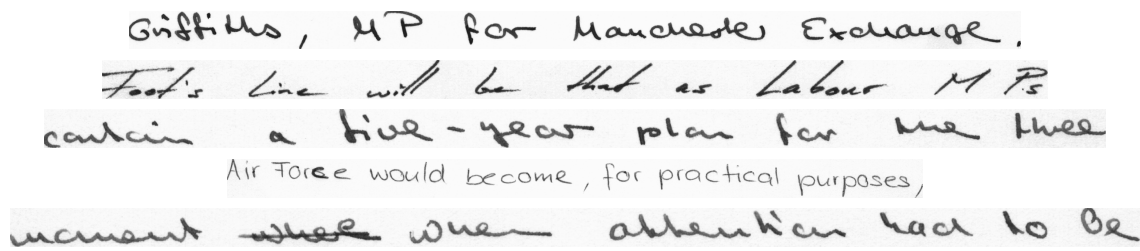 Griffiths, MP for Manchester Exchange.
Foot's line will be that as Labour M Ps
contain a five-year plan for the three
Air Force would become, for practical purposes,
moment when attention had to be